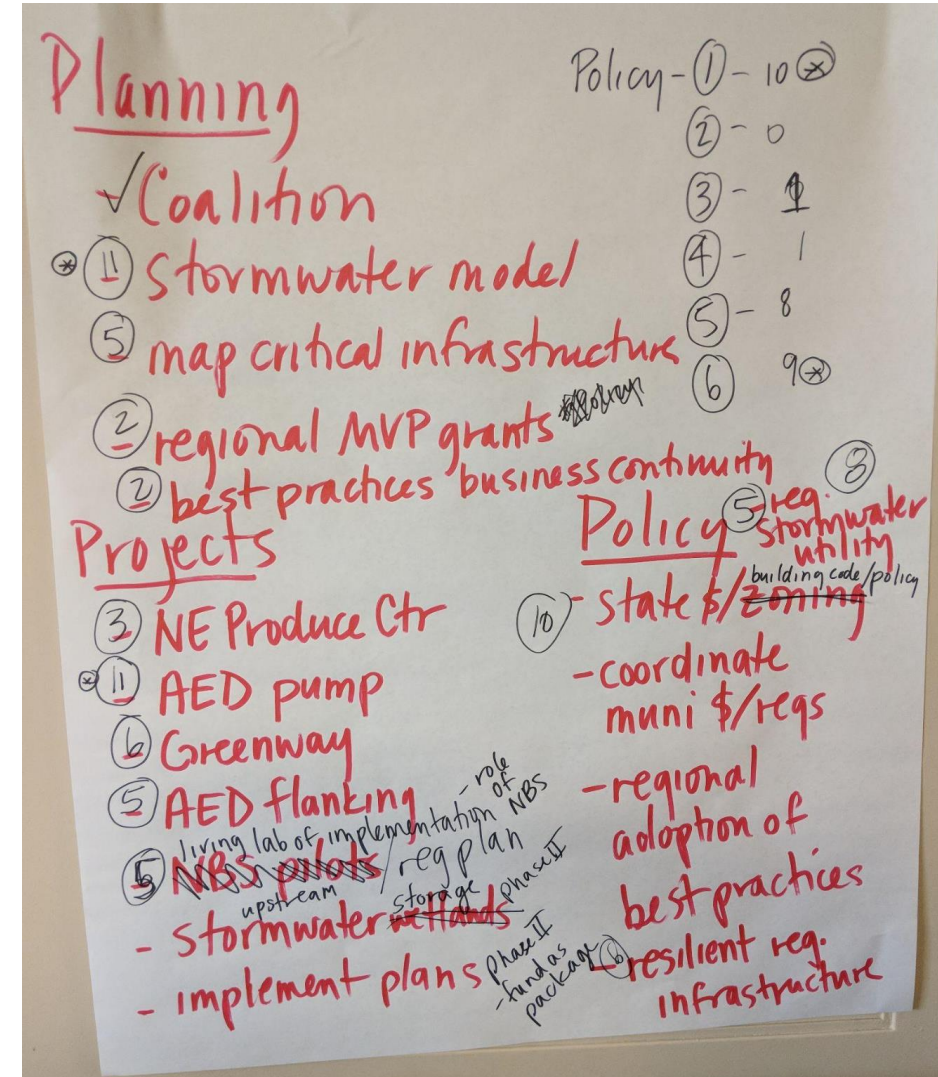 Planning
✓ Coalition
⊛ ⑪ stormwater model
⑤ map critical infrastructure
② regional MVP grants
② best practices business continuity
Policy - ① - 10 ⊛
② - 0
③ - 1
④ - 1
⑤ - 8
⑥ 9 ⊛
Projects
③ NE Produce Ctr
⊛ ⑪ AED pump
⑥ Greenway
⑤ AED flanking
living lab of implementation - role of NBS
⑤ NBS pilots / reg plan
upstream storage
- stormwater wetlands phase II
- implement plans phase II
- fund as package
⑧
Policy ⑤ - reg. stormwater utility
building code/policy
⑩ - state $/zoning
- coordinate
muni $/regs
- regional
adoption of
best practices
⑥ - resilient reg.
infrastructure